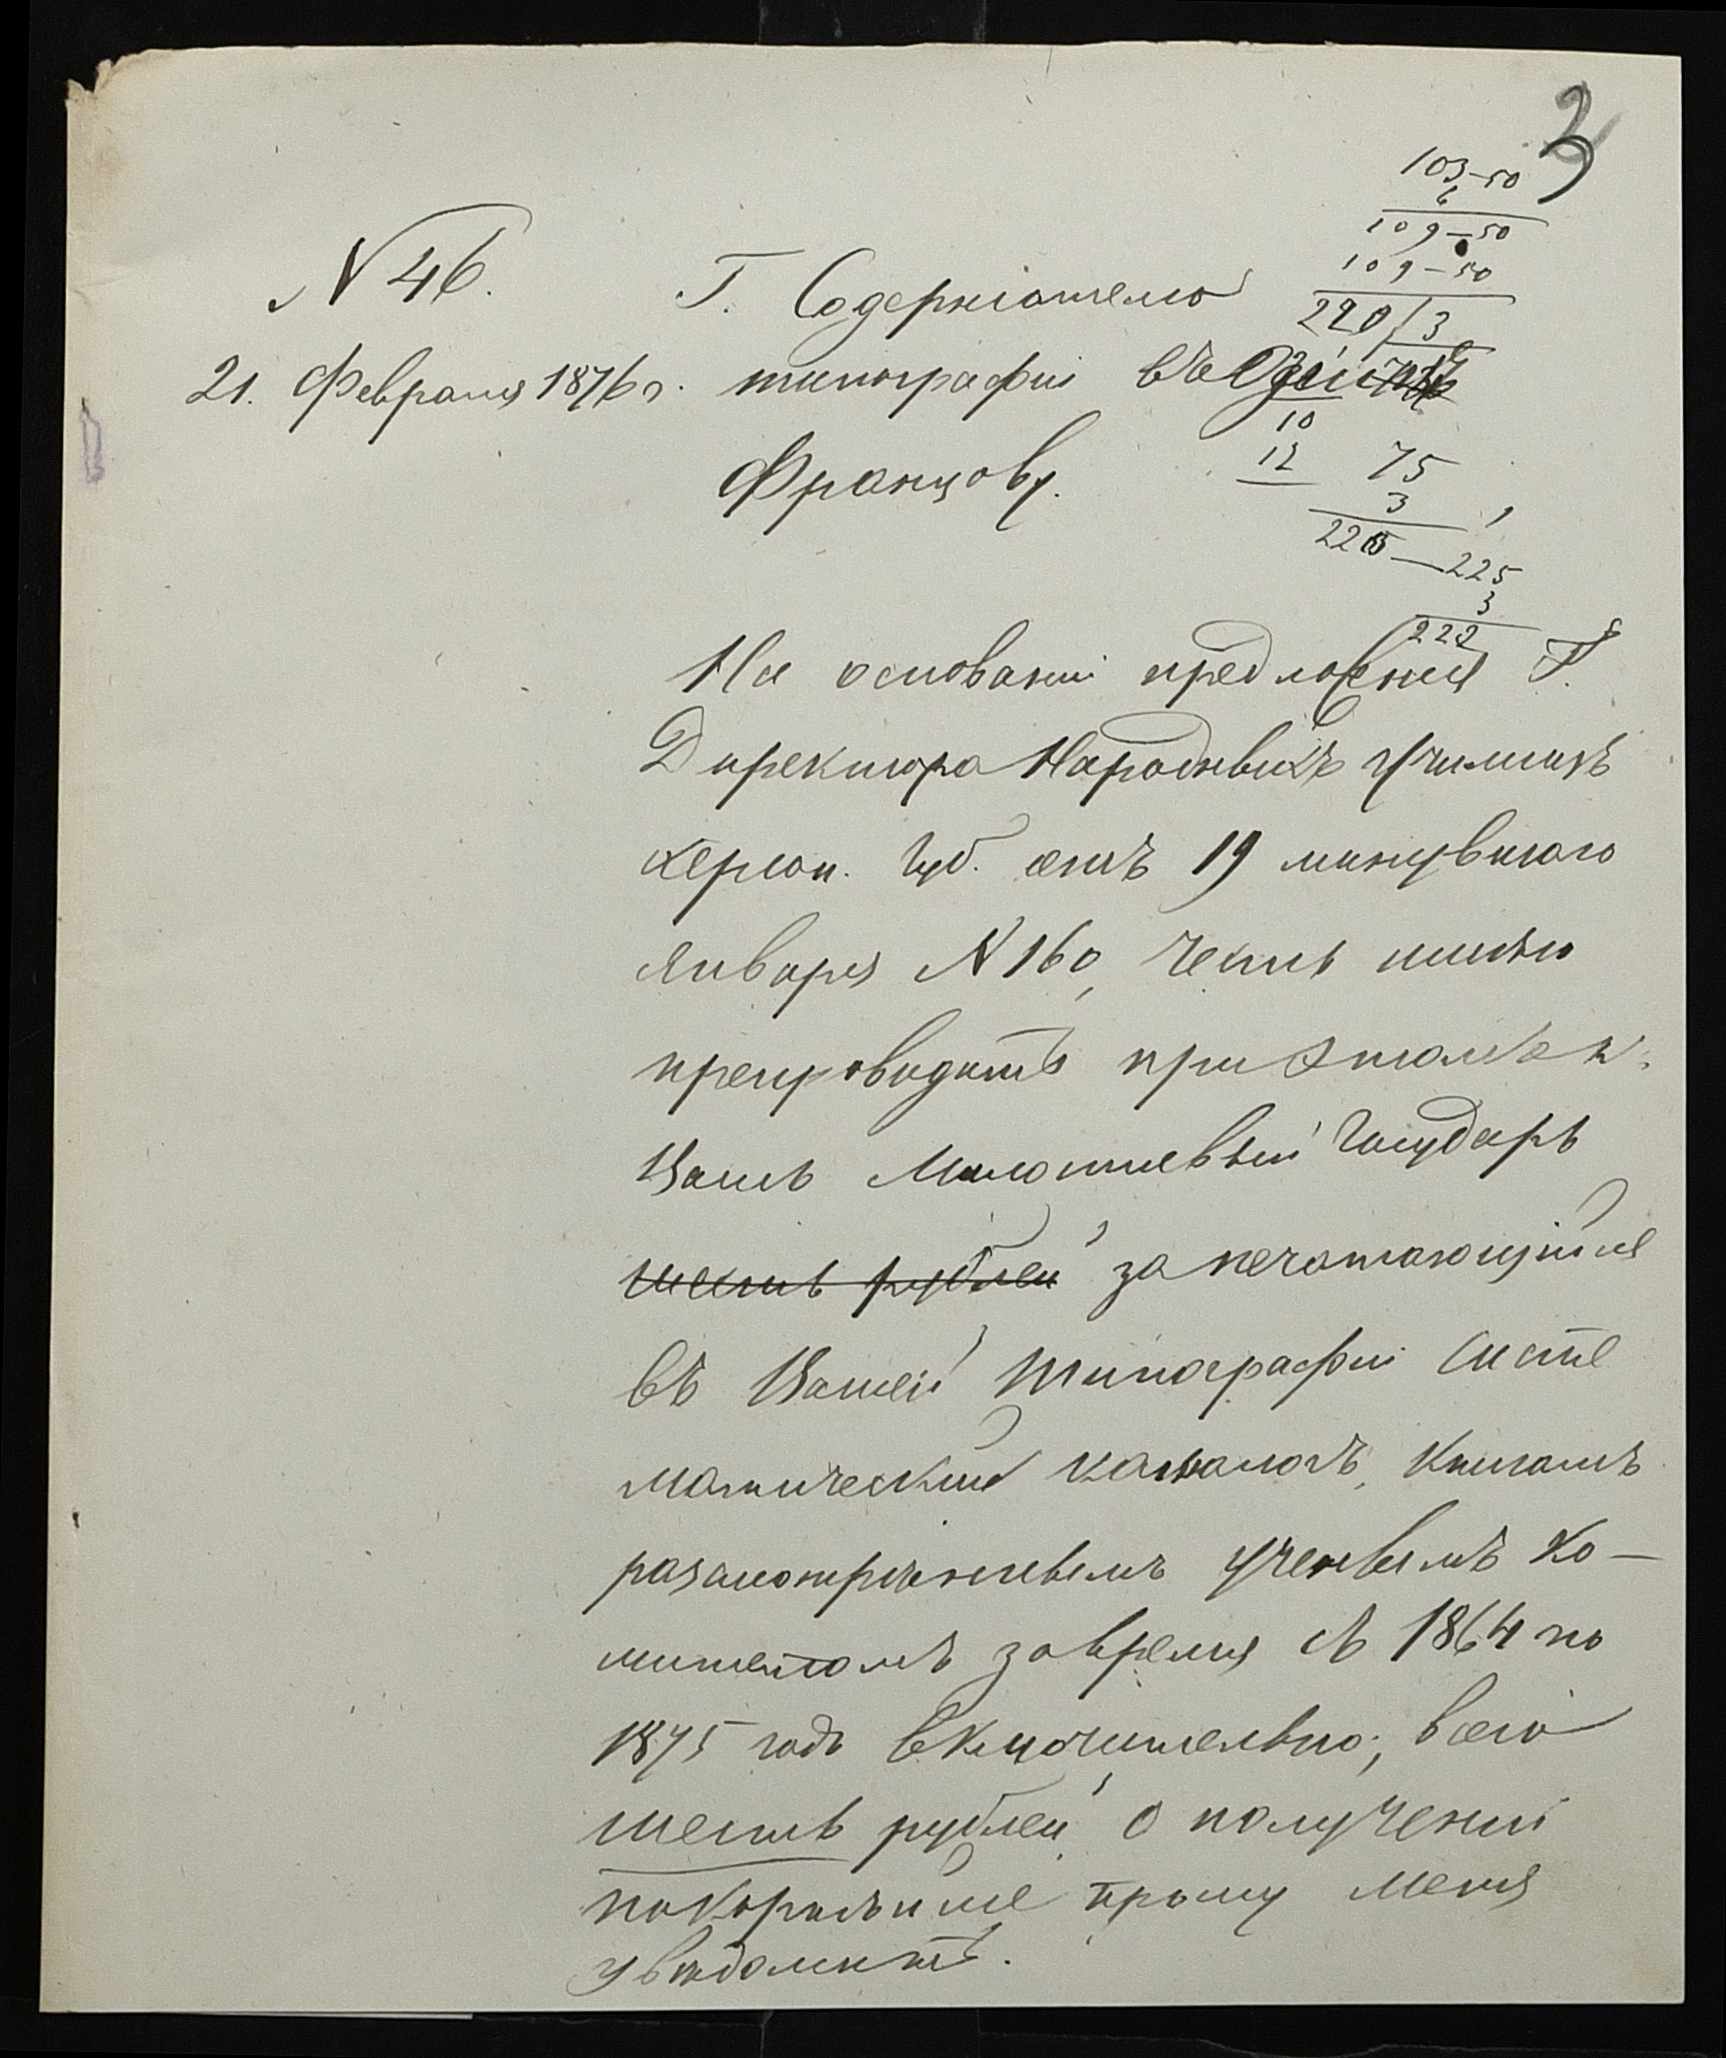 3
103-50
6
109-50
109-50
220 / 3
10
12 75
3
225 — 225
3
222
N 46.
21. Февраля 1876 г.
Г. Содержателю
типографіи въ Одессѣ
Францову.
На основаніи предложенія Г.
Директора Народныхъ училищъ
Херсон. Губ. отъ 19 минувшаго
Января N 160, честь имѣю
препроводить при этомъ
Вамъ Милостивый Государь
шесть рублей за печатающійся
въ Вашей Типографіи Систе
матическій каталогъ, книгамъ
разсмотрѣннымъ ученымъ Ко-
митетомъ за время съ 1864 по
1875 годъ включительно; всего
шесть рублей о полученіи
покорнѣйше прошу меня
увѣдомить.